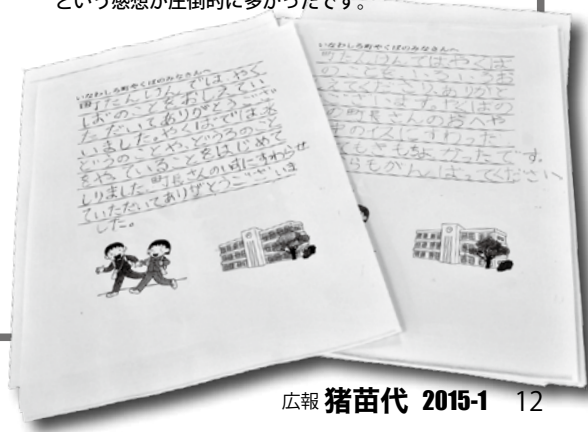 という感想が圧倒的に多かったです。
いなわしろ町やくばのみなさんへ
町たんけんでは、やく
ばのことをおしえてい
ただいてありがとうござ
いました。やくばでは
どうのことや、どうろのこと
をやっていることをはじめて
しりました。町長さんのいすにすわらせ
ていただいてありがとうございま
した。
いなわしろ町やくばのみなさんへ
町たんけんではやくば
のことをいろいろお
えてくださりありがと
ございます。やくばの
町長さんのおへや
のイスにすわった
てもきもちよかったです。
らもがんばってください
広報 猪苗代 2015-1 12